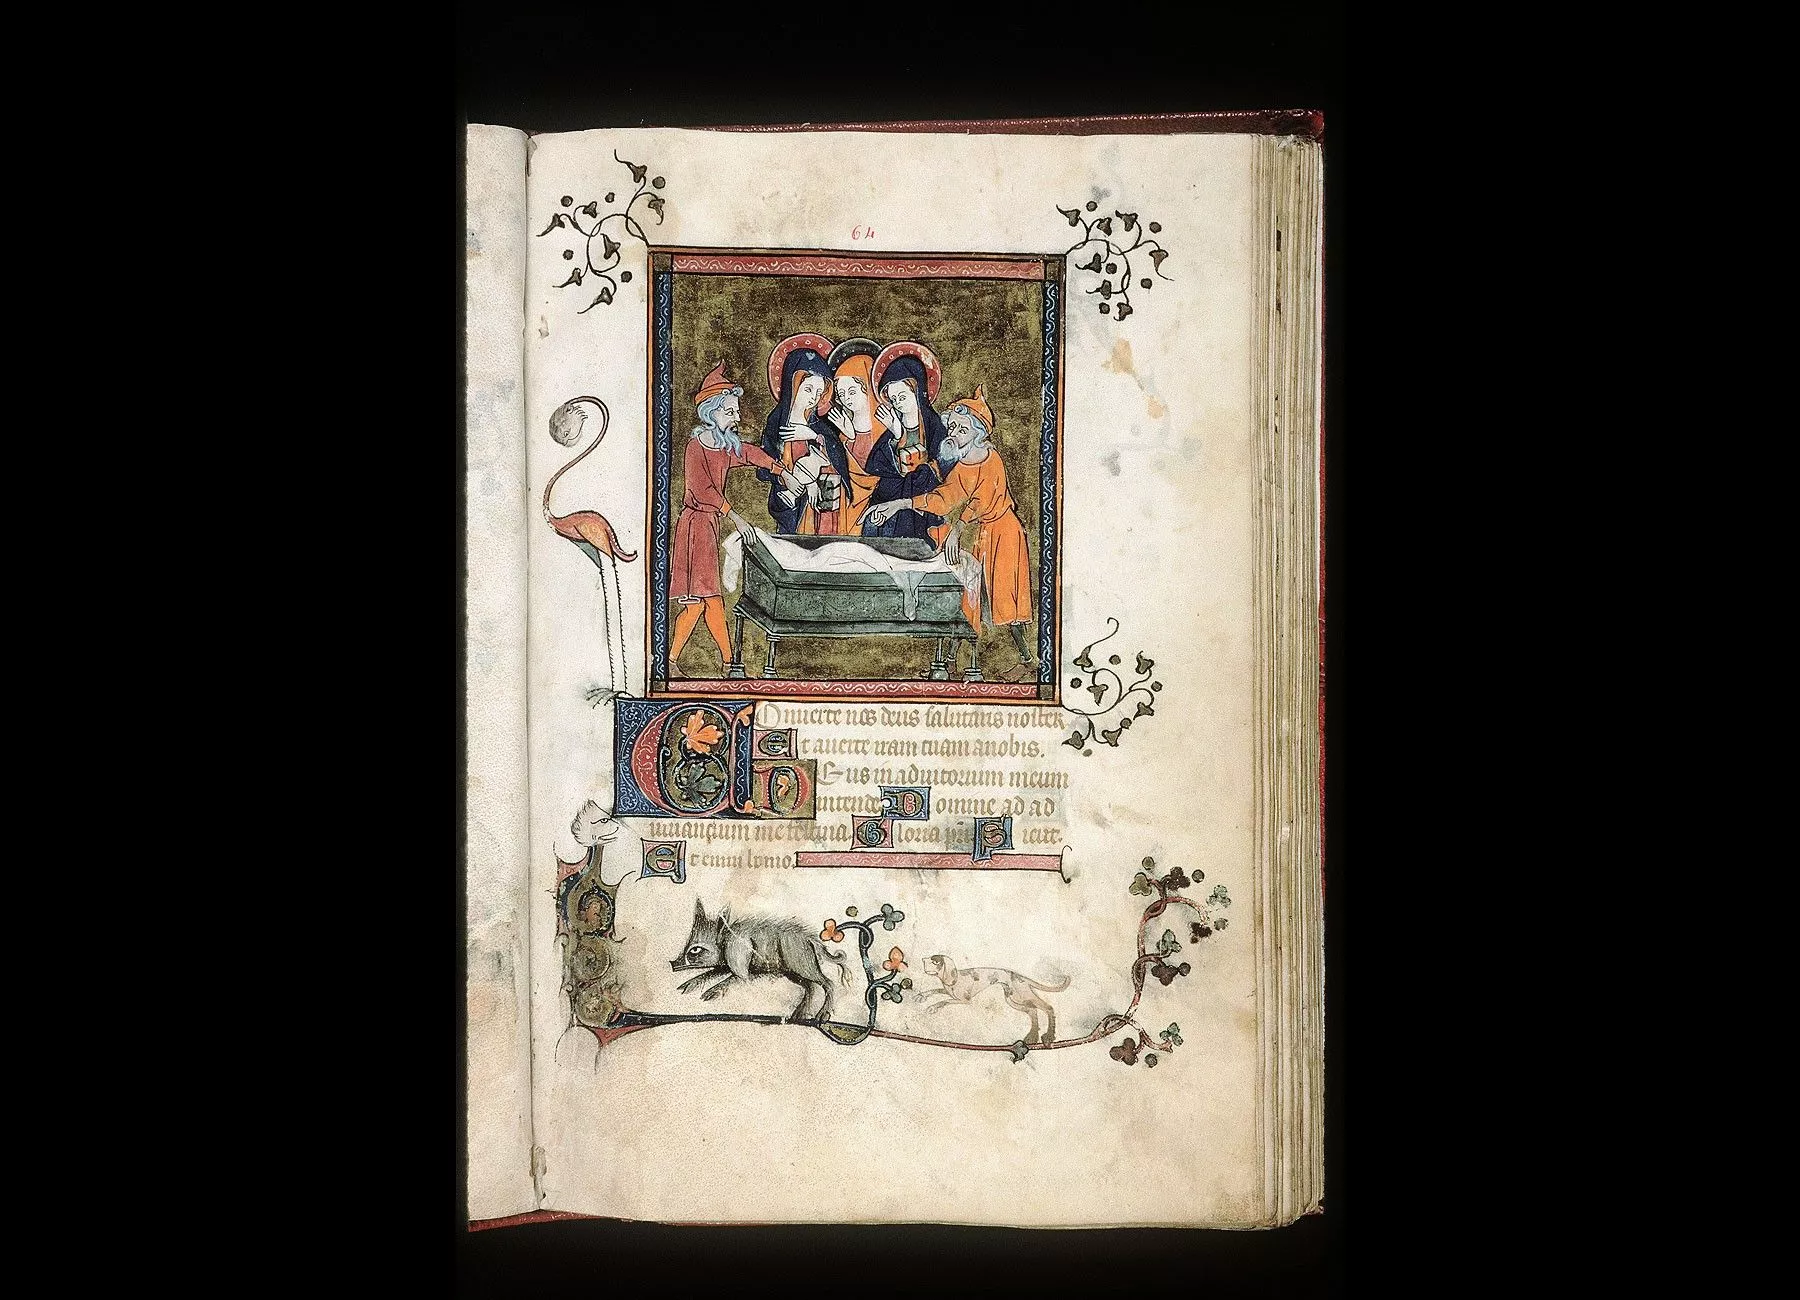 64
Conuerte nos deus salutaris noster
Et auerte iram tuam a nobis.
Deus in adiutorium meum
intende Domine ad ad
iuuandum me festina Gloria pri Sicut.